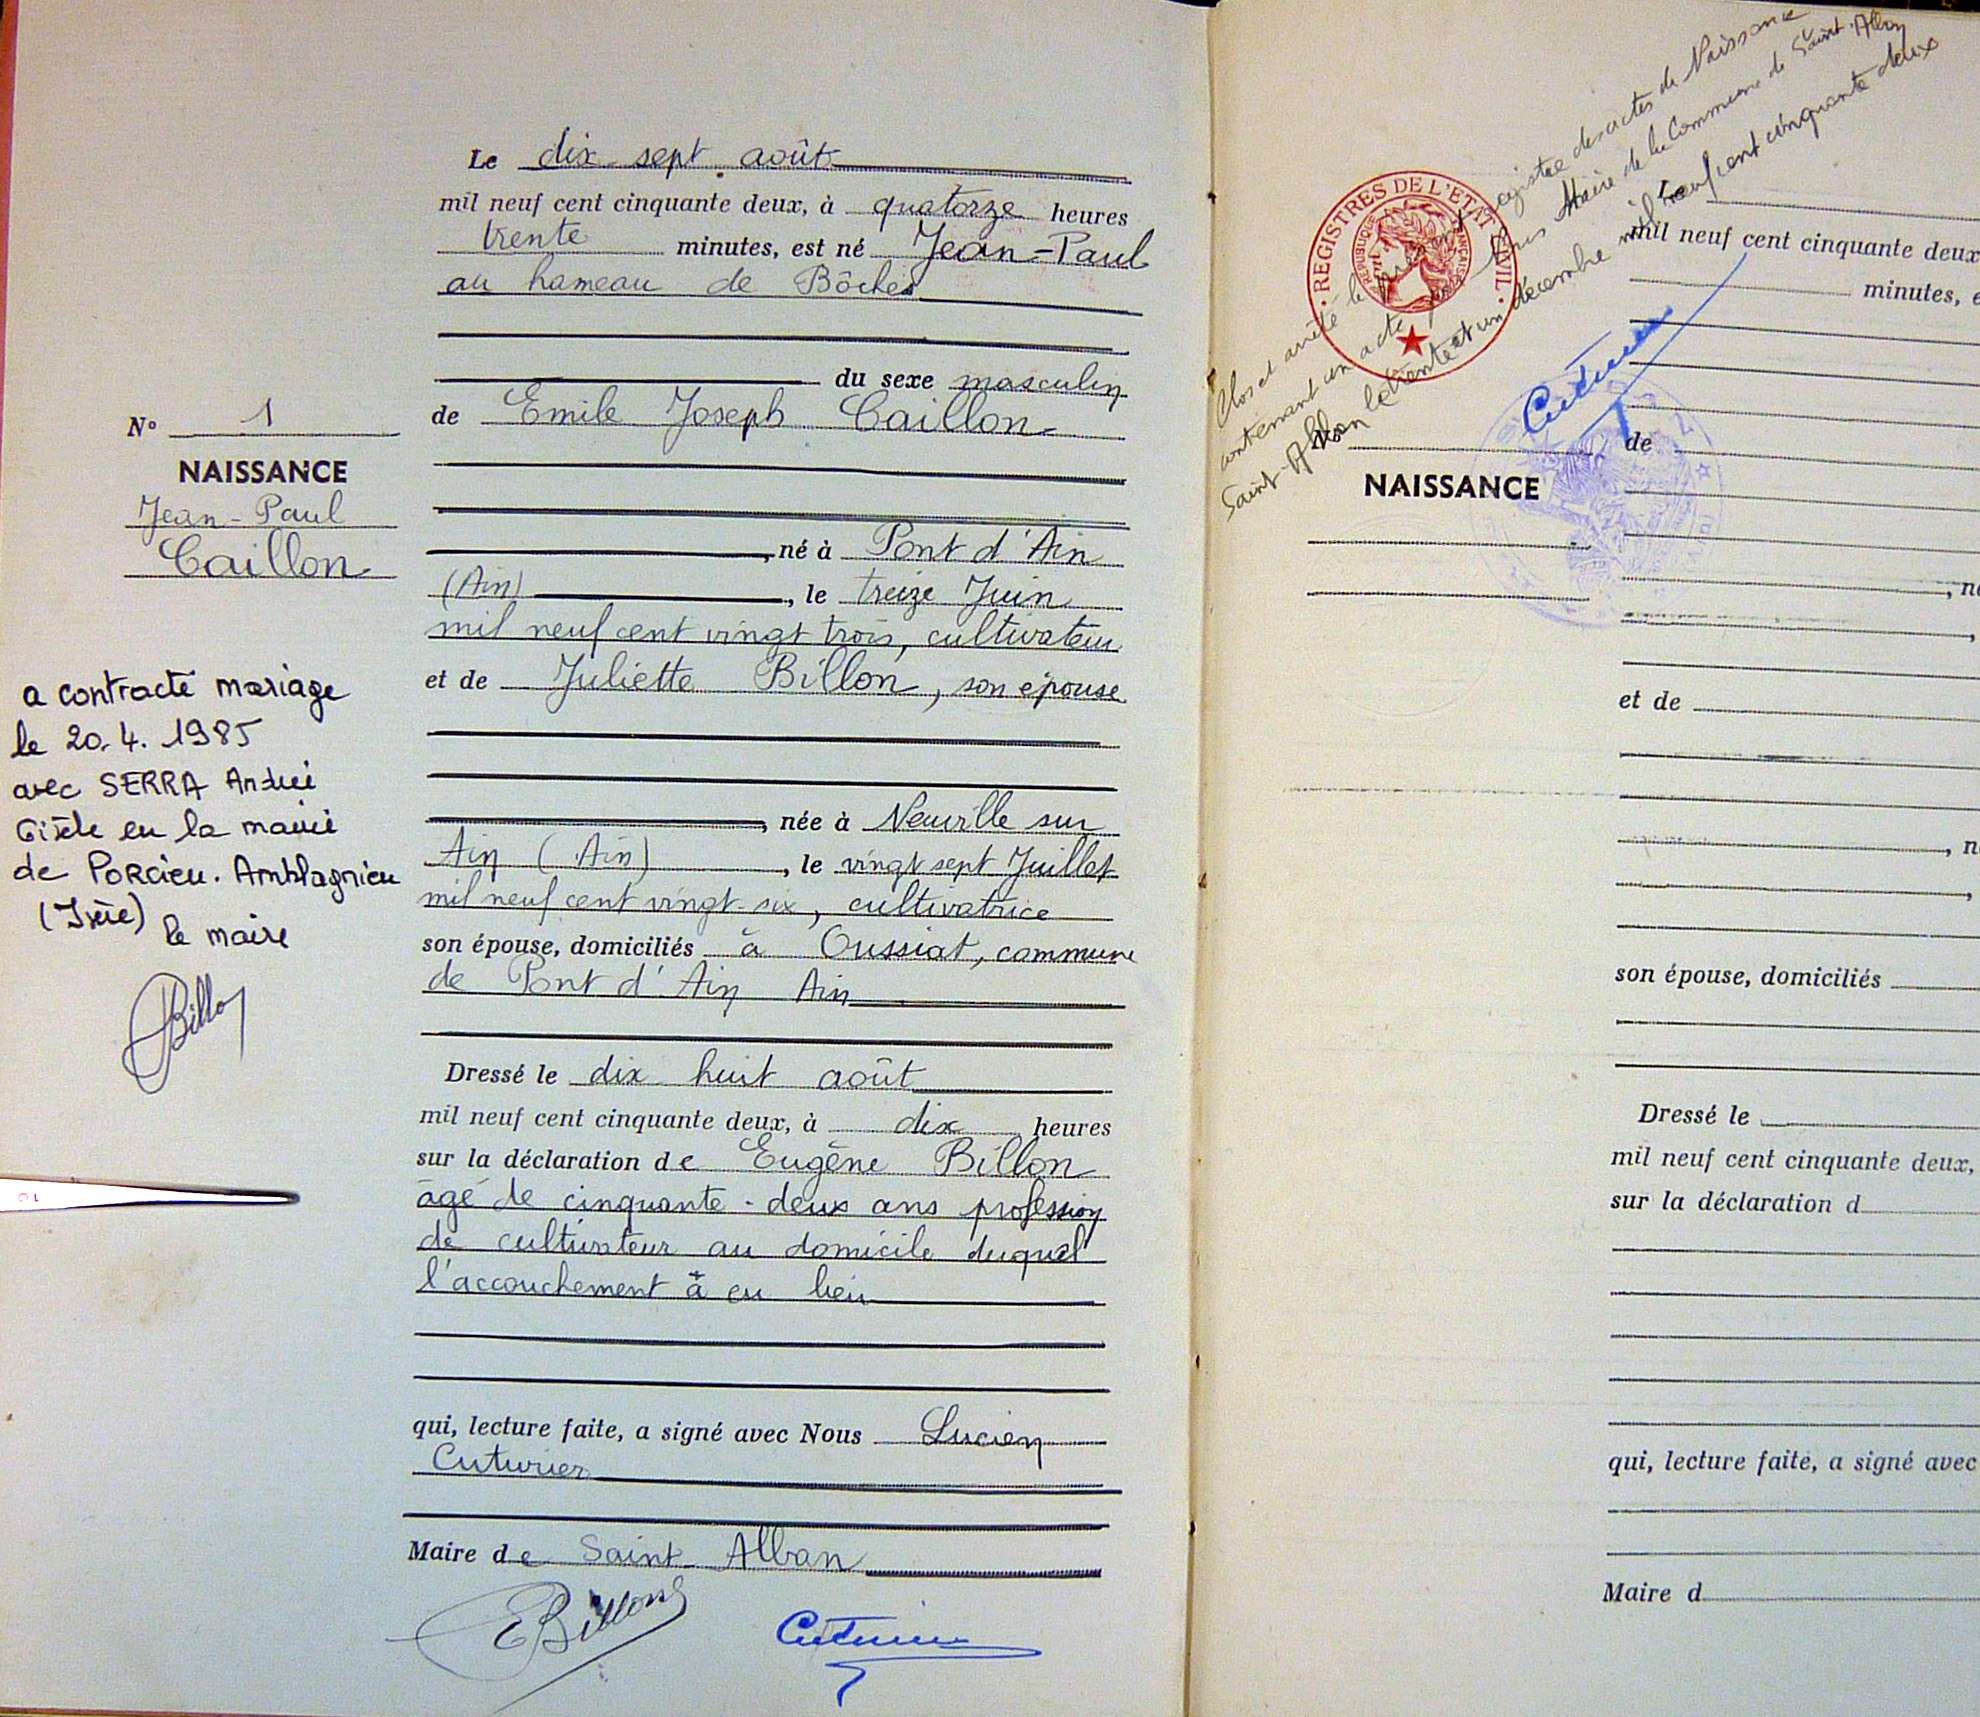 Le dix sept août
mil neuf cent cinquante deux, à quatorze heures
trente minutes, est né Jean-Paul
au hameau de Bôches
du sexe masculin
de Emile Joseph Caillon
né à Pont d'Ain
(Ain), le treize Juin
mil neuf cent vingt trois, cultivateur
et de Juliette Billon, son épouse
, née à Neuville sur
Ain (Ain), le vingt sept Juillet
mil neuf cent vingt-six, cultivatrice
son épouse, domiciliés à Oussiat, commune
de Pont d'Ain Ain
Dressé le dix huit août
mil neuf cent cinquante deux, à dix heures
sur la déclaration de Eugène Billon
âgé de cinquante-deux ans profession
de cultivateur au domicile duquel
l'accouchement à eu lieu
qui, lecture faite, a signé avec Nous Lucien
Cuturier
Maire de Saint Alban
EBillon
Cuturier
N° 1
NAISSANCE
Jean-Paul
Caillon
a contracté mariage
le 20.4.1985
avec SERRA Andrée
Gisèle en la mairie
de PORCIEU. Amblagnieu
(Isère) le maire
Billon
Clos et arrêté le présent registre des actes de Naissance
contenant un acte par Nous Maire de la Commune de Saint-Alban
Saint-Alban le trente et un décembre mil neuf cent cinquante deux
REGISTRES DE L'ETAT CIVIL
REPUBLIQUE FRANÇAISE
Cuturier
NAISSANCE
Le
mil neuf cent cinquante deux
minutes, e
de
, né
,
et de
, n
,
son épouse, domiciliés
Dressé le
mil neuf cent cinquante deux,
sur la déclaration d
qui, lecture faite, a signé avec
Maire d